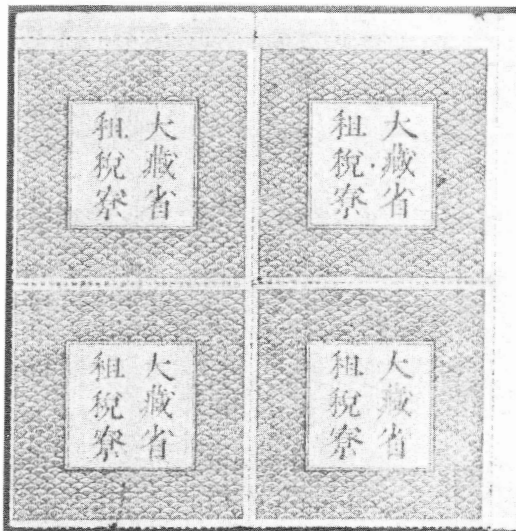 大藏省
租稅寮
大藏省
租稅寮
大藏省
租稅寮
大藏省
租稅寮